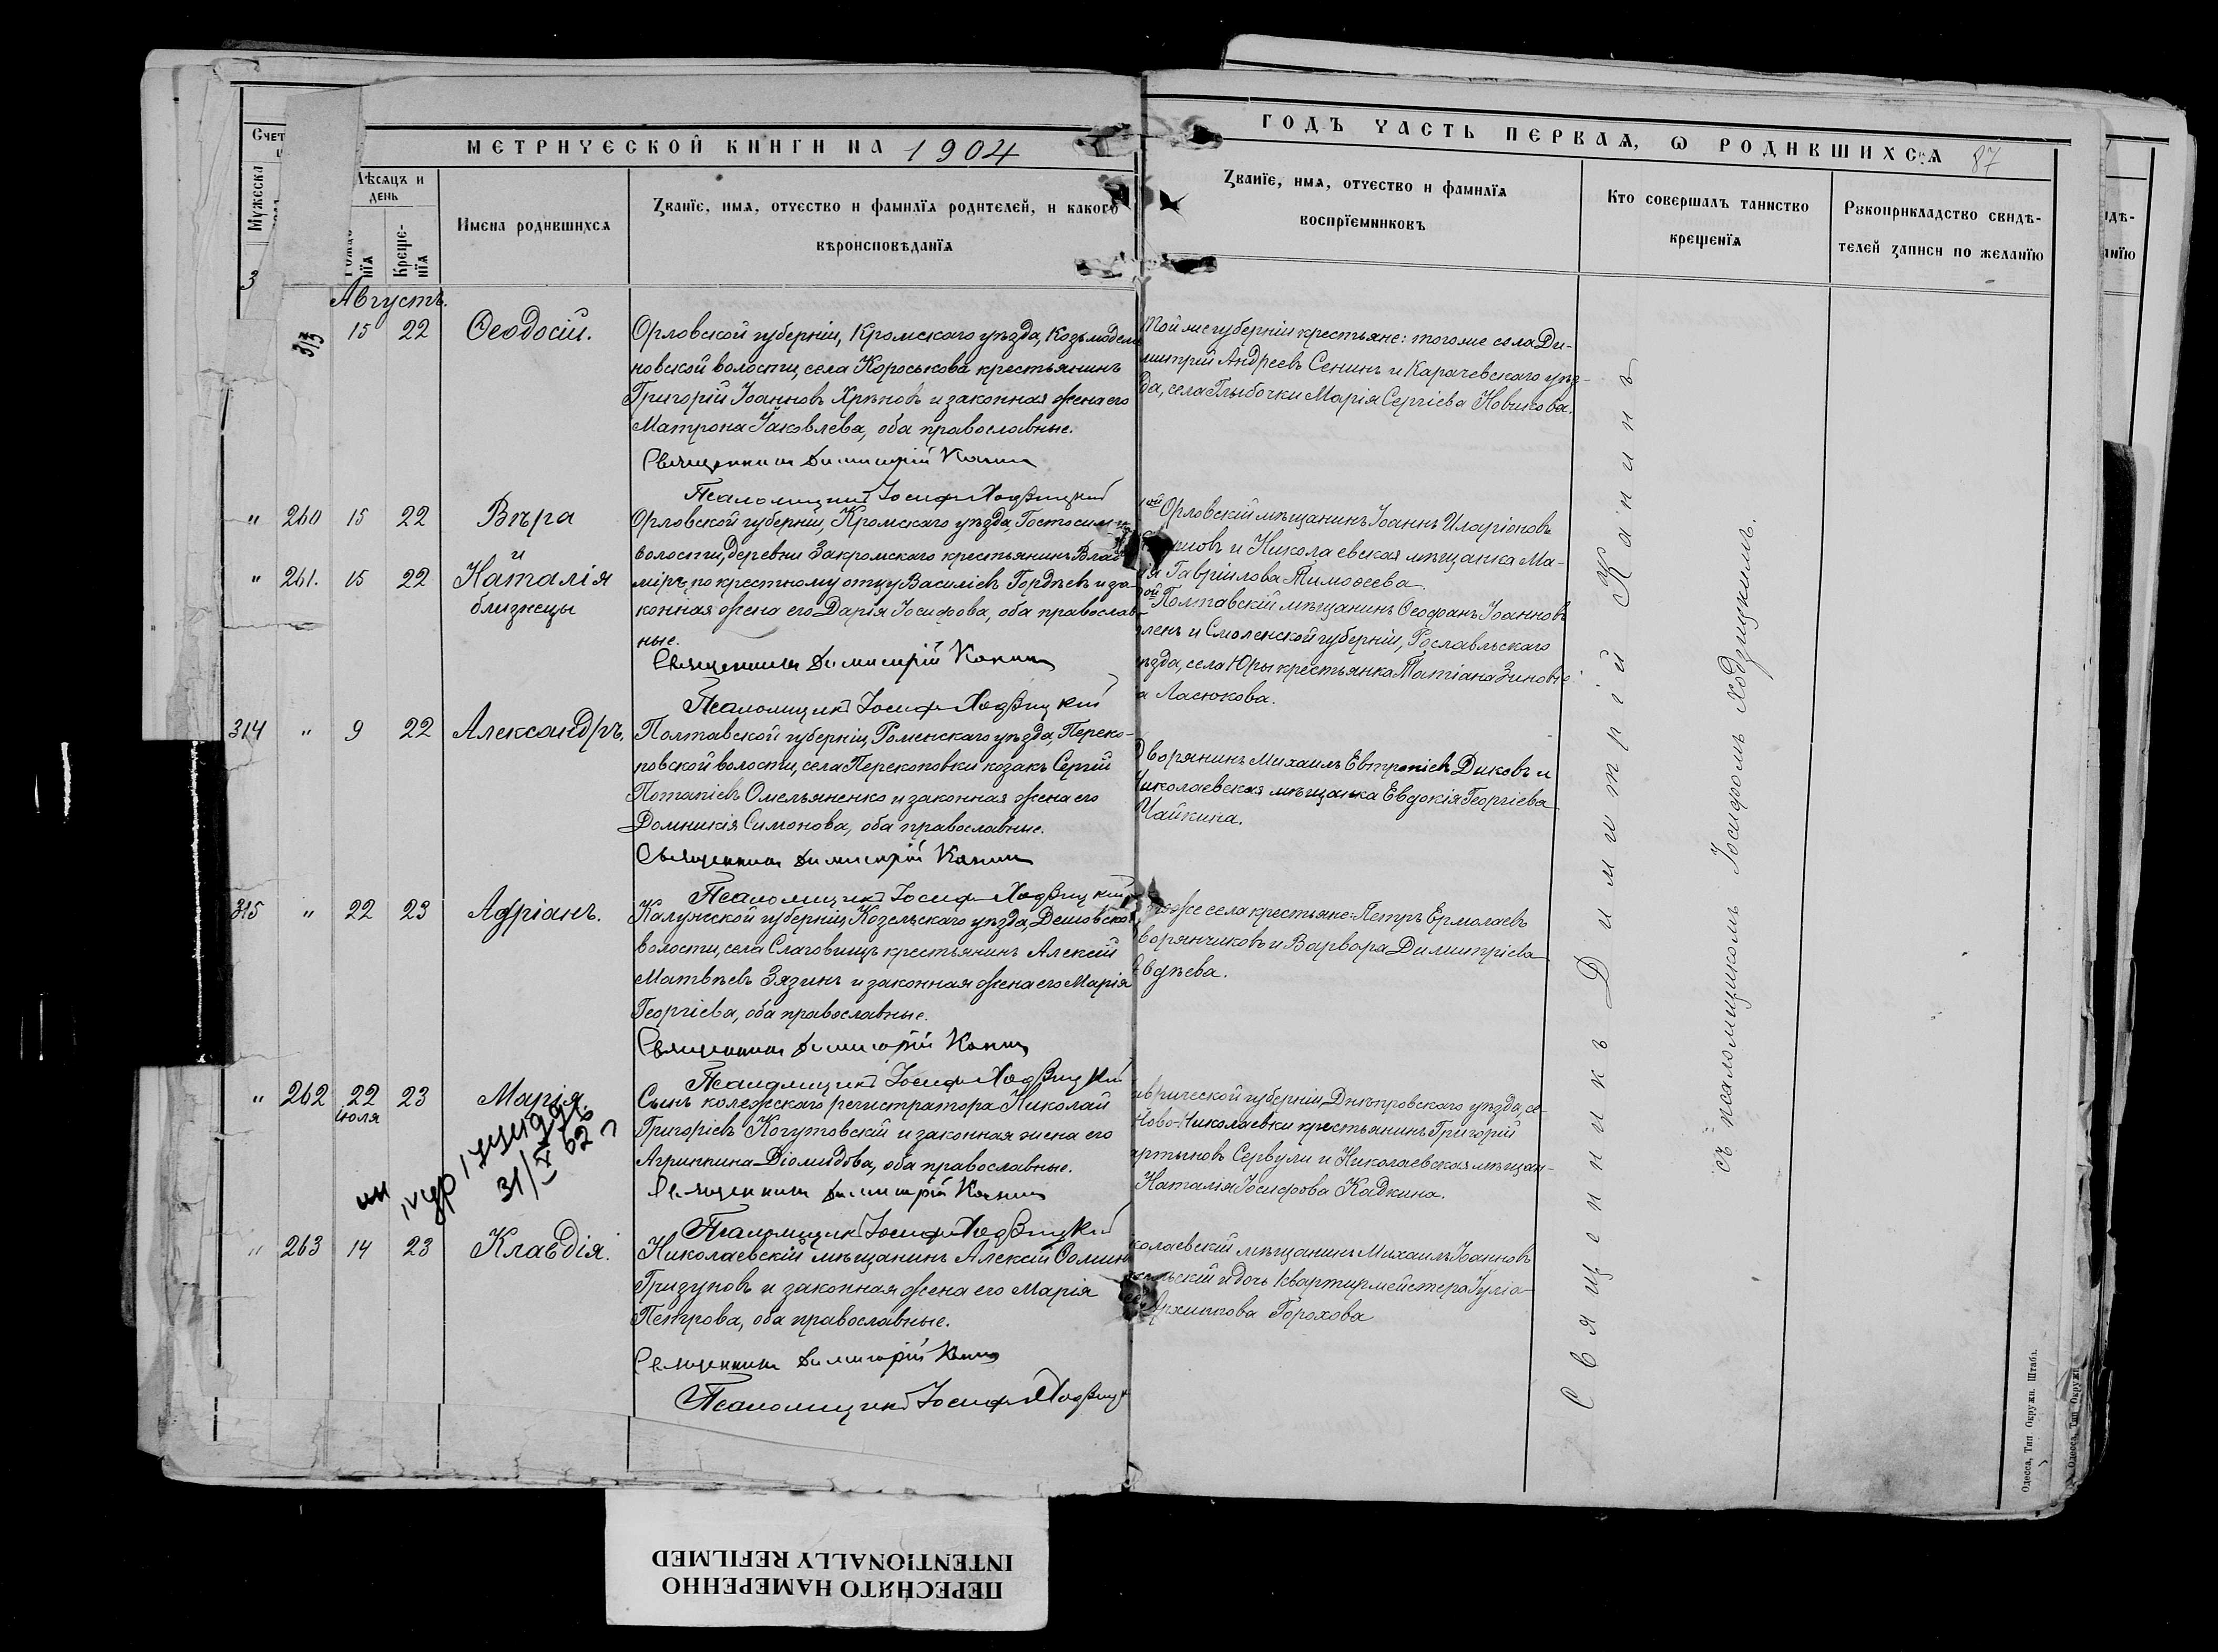 МЕТРИЧЕСКОЙ КНИГИ НА 1904
Счет
Мужеска
Мѣсяцъ и
день
нїя
Креще-
нїя
Имена родившихся
Званїе, имя, отчество и фамилїя родителей, и какого
вѣроисповѣданїя
3
Августъ.
313
15 22 Ѳеодосій.
Орловской губерніи, Кромскаго уѣзда, Козьмодемья
новской волости, села Короськова крестьянинъ
Григорій Іоанновъ Хрѣновъ и законная жена его
Матрона Іаковлева, оба православные.
Священникъ Димитрій Канинъ
Псаломщикъ Іосифъ Ходзицкій
" 260 15 22 Вѣра
и
" 261. 15 22 Наталія
близнецы
Орловской губерніи, Кромскаго уѣзда,
волости, деревни Закромскаго крестьянинъ Влади
міръ, по крестному отцу Василіевъ Гордѣевъ и за-
конная жена его Дарія Іосифова, оба православ-
ные.
Священникъ Димитрій Канинъ
Псаломщикъ Іосифъ Ходзицкій
314 " 9 22 Александръ.
Полтавской губерніи, Роменскаго уѣзда, Переко-
повской волости, села Перекоповки козакъ Сергій
Потапіевъ Омельяненко и законная жена его
Домникія Симонова, оба православные.
Священникъ Димитрій Канинъ
Псаломщикъ Іосифъ Ходзицкій
315 " 22 23 Адріанъ.
Калужской губерніи, Козельскаго уѣзда, Дешовской
волости, села Слаговищъ крестьянинъ Алексій
Матвѣевъ Зязинъ и законная жена его Марія
Георгіева, оба православные.
Священникъ Димитрій Канинъ
Псаломщикъ Іосифъ Ходзицкій
" 262 22 23 Марія
іюля
31/X 62
Сынъ колежскаго регистратора Николай
Григоріевъ Когутовскій и законная жена его
Агриппина Діомидова, оба православные.
Священникъ Димитрій Канинъ
Псаломщикъ Іосифъ Ходзицкій
" 263 14 23 Клавдія.
Николаевскій мѣщанинъ Алексій Ѳомин
Гризуновъ и законная жена его Марія
Петрова, оба православные.
Священникъ Димитрій Канинъ
Псаломщикъ Іосифъ Ходзицк
ГОДЪ ЧАСТЬ ПЕРВАЯ, Ѡ РОДИВШИХСЯ 87
Званїе, имя, отчество и фамилїя
воспрїемниковъ
Кто совершалъ таинство
крещенїя
Рукоприкладство свидѣ-
телей записи по желанїю
Той же губерніи крестьяне: тогоже села Ди-
митрій Андреевъ Сенинъ и Карачевскаго уѣз-
да, села Глыбочки Марія Сергіева Новикова.
1ой Орловскій мѣщанинъ Іоаннъ Иларіоновъ
и Николаевская мѣщанка Ма-
ія Гавріилова Тимоѳеева.
2ой Полтавскій мѣщанинъ Ѳеофанъ Іоанновъ
ленъ и Смоленской губерніи, Рославльскаго
уѣзда, села Юры крестьянка Татіана Зиновіе
а Ласюкова.
Дворянинъ Михаилъ Евтропіевъ Диковъ и
Николаевская мѣщанка Евдокія Георгіева
Чайкина.
тогоже села крестьяне: Петръ Ермолаевъ
ворянчиковъ и Варвара Димитріева
Авдѣева.
аврической губерніи, Днѣпровскаго уѣзда, се-
Ново-Николаевки крестьянинъ Григорій
артыновъ Сервули и Николаевская мѣщан-
Наталія Іосифова Кадкина.
колаевскій мѣщанинъ Михаилъ Іоанновъ
ельскій и дочь квартирмейстера Іулія
Архиппова Горохова
Священникъ Димитрій Канинъ
съ псаломщикомъ Іосифомъ Ходзицкимъ.
Одесса, Тип Окружн. Штаба.
Одесса, Тип Окружн
идѣ-
анїю
ПЕРЕСНЯТО НАМЕРЕННО
INTENTIONALLY REFILMED